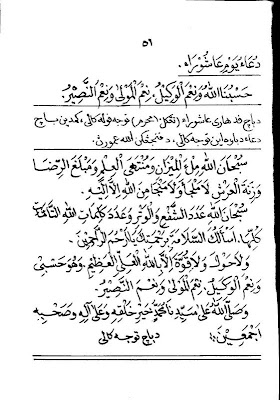 ٥٦
دعاء يوم عاشوراء.
حَسْبُنَا اللهُ وَنِعْمَ الْوَكِيلُ، نِعْمَ الْمَوْلَى وَنِعْمَ النَّصِيرُ.
دباچ فد هاري عاشوراء (تڠكل ١٠ محرم) توجه ڤوله كالي، كمدين باچ
دعاء دباوه اين توجه كالي. دڤنجڠكن الله عمورڽ.
سُبْحَانَ اللهِ مِلْءَ الْمِيزَانِ وَمُنْتَهَى الْعِلْمِ وَمَبْلَغَ الرِّضَا
وَزِنَةَ الْعَرْشِ لَا مَلْجَأَ وَلَا مَنْجَأَ مِنَ اللهِ إِلَّا إِلَيْهِ.
سُبْحَانَ اللهِ عَدَدَ الشَّفْعِ وَالْوَتْرِ وَعَدَدَ كَلِمَاتِ اللهِ التَّامَّاتِ
كُلِّهَا، أَسْأَلُكَ السَّلَامَةَ بِرَحْمَتِكَ يَا أَرْحَمَ الرَّاحِمِينَ.
وَلَا حَوْلَ وَلَا قُوَّةَ إِلَّا بِاللهِ الْعَلِيِّ الْعَظِيمِ. وَهُوَ حَسْبِي
وَنِعْمَ الْوَكِيلُ، نِعْمَ الْمَوْلَى وَنِعْمَ النَّصِيرُ.
وَصَلَّى اللهُ عَلَى سَيِّدِنَا مُحَمَّدٍ خَيْرِ خَلْقِهِ وَعَلَى آلِهِ وَصَحْبِهِ
أَجْمَعِينَ. دباچ توجه كالي